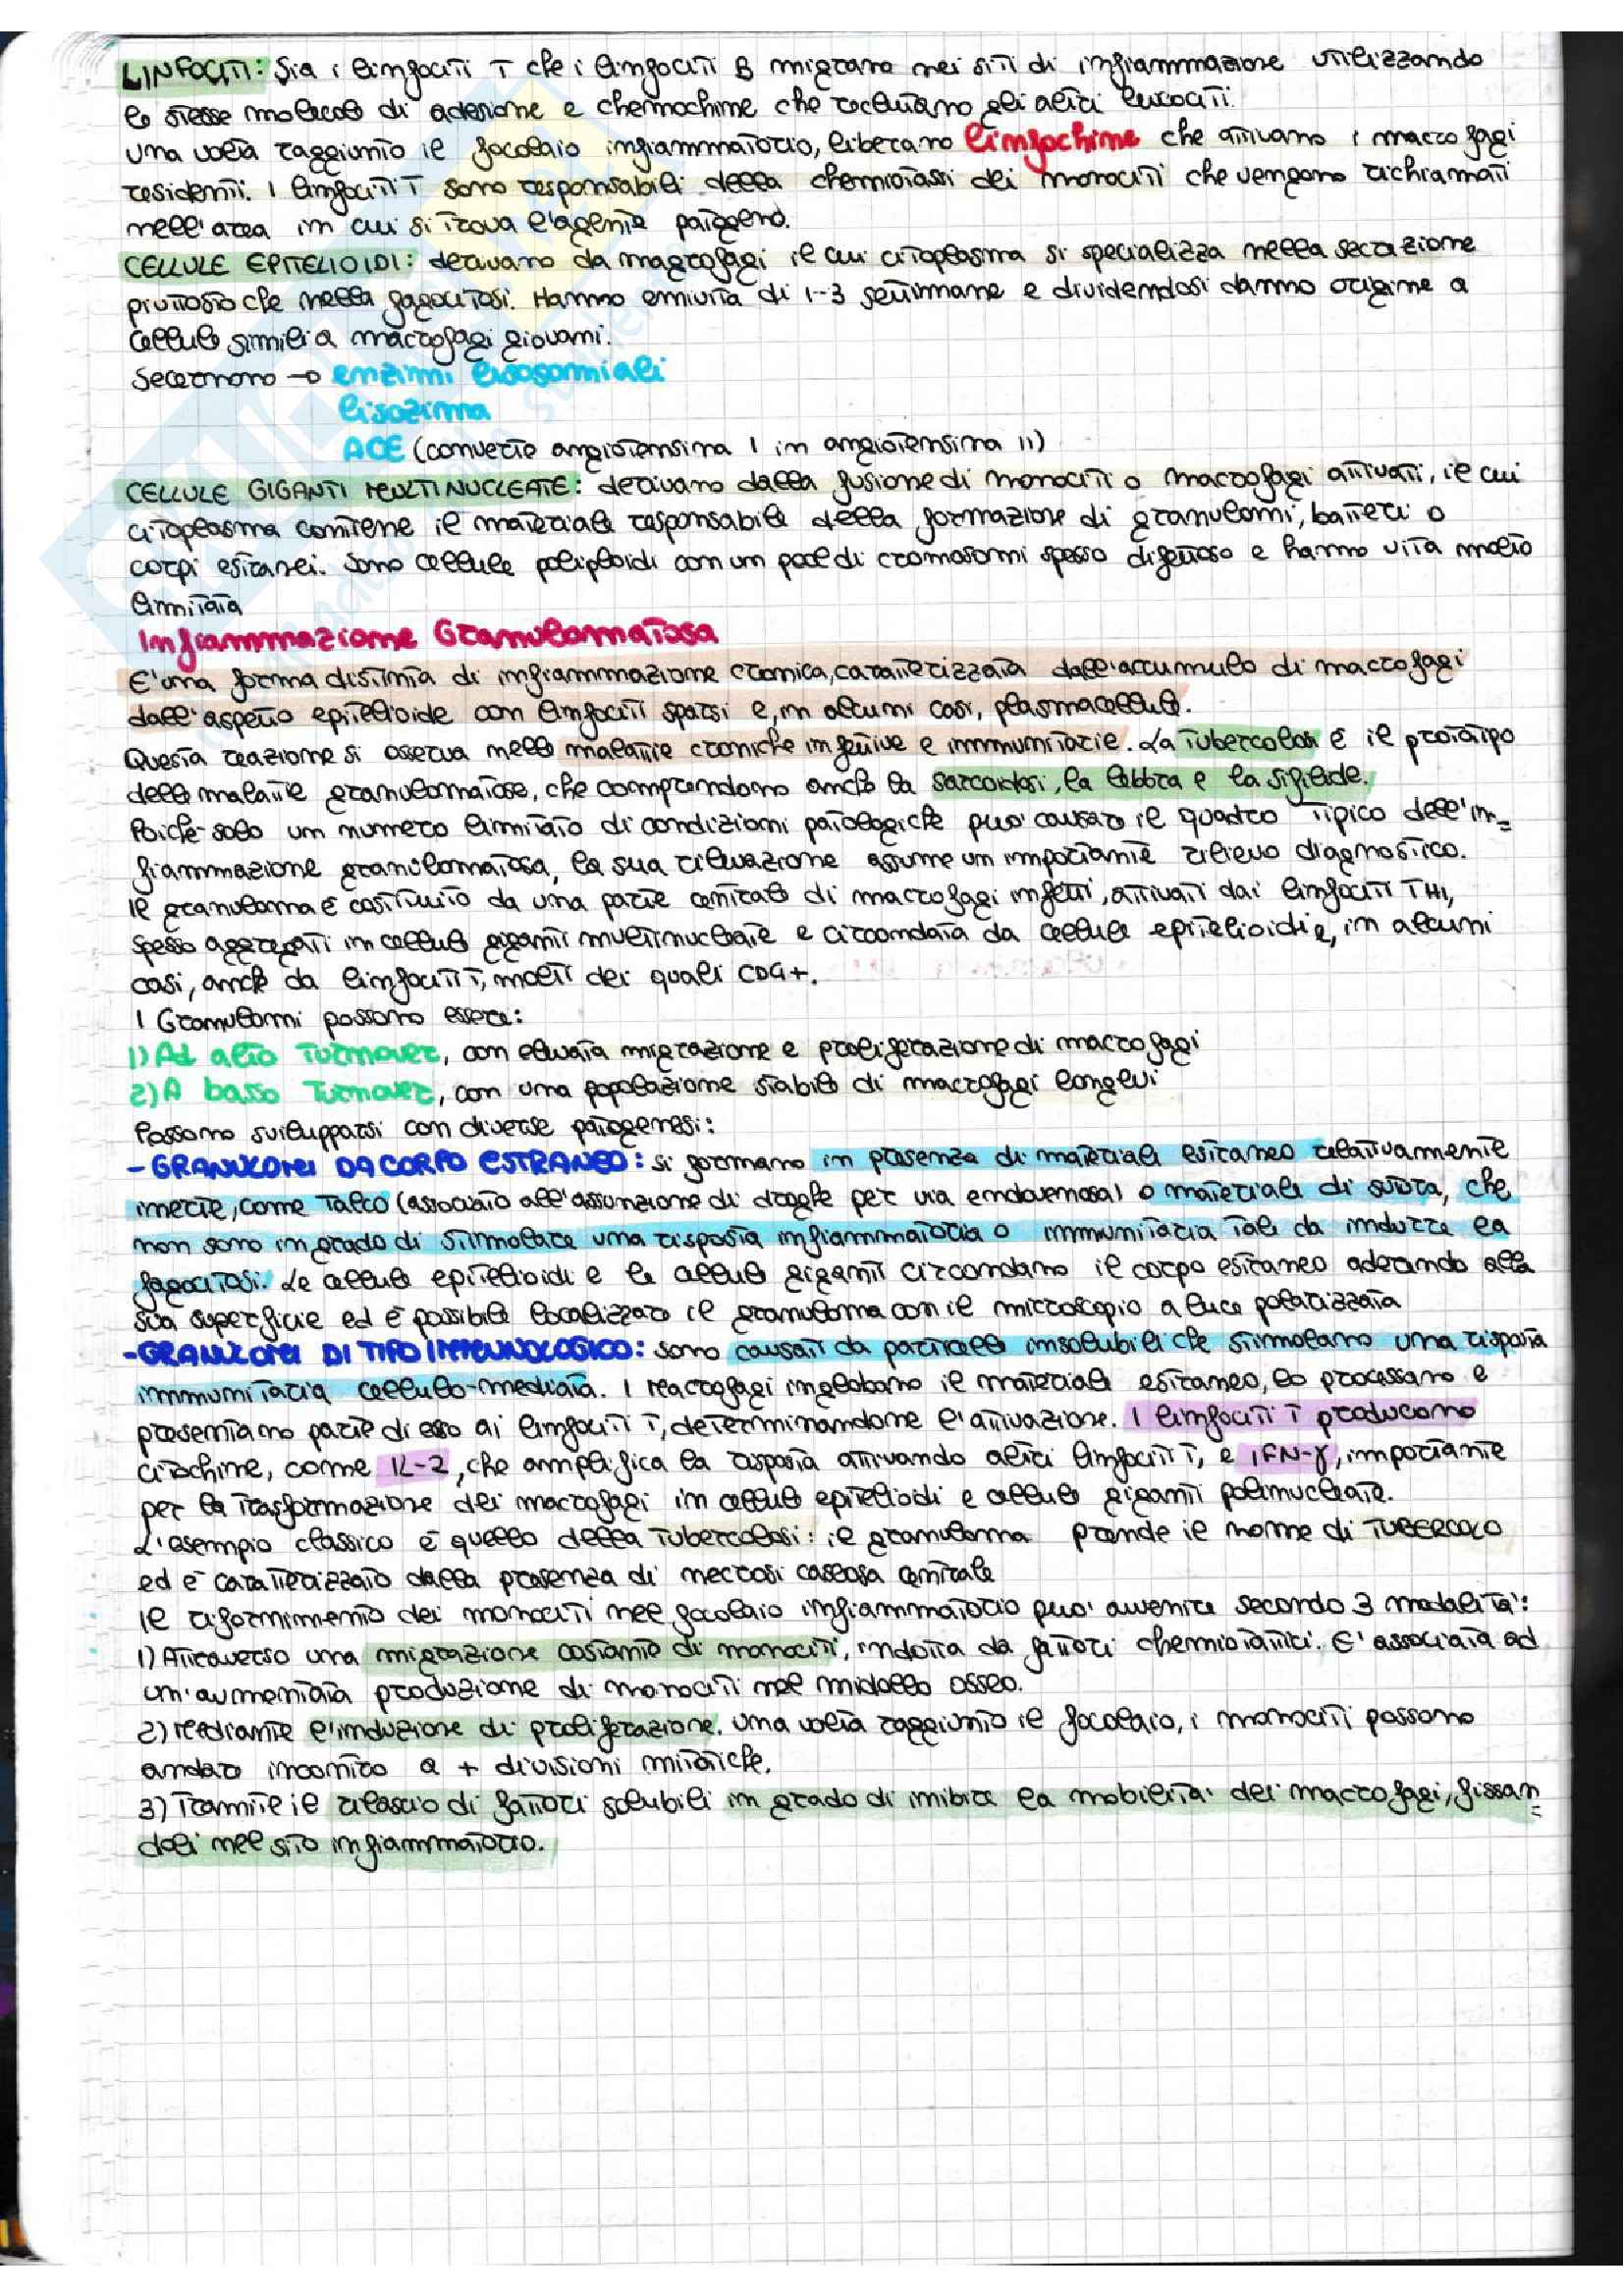 LINFOCITI: Sia i linfociti T che i linfociti B migrano nei siti di infiammazione utilizzando
le stesse molecole di adesione e chemochine che reclutano gli altri leucociti.
Una volta raggiunto il focolaio infiammatorio, liberano linfochine che attivano i macrofagi
residenti. I linfociti T sono responsabili della chemiotassi dei monociti che vengono richiamati
nell'area in cui si trova l'agente patogeno.
CELLULE EPITELIOIDI: derivano da macrofagi il cui citoplasma si specializza nella secrezione
piuttosto che nella fagocitosi. Hanno emivita di 1-3 settimane e dividendosi danno origine a
cellule simili a macrofagi giovani.
Secernono → enzimi lisosomiali
lisozima
ACE (converte angiotensina I in angiotensina II)
CELLULE GIGANTI MULTINUCLEATE: derivano dalla fusione di monociti o macrofagi attivati, il cui
citoplasma contiene il materiale responsabile della formazione di granulomi, batteri o
corpi estranei. Sono cellule poliploidi con un pool di cromosomi spesso difettoso e hanno vita molto
limitata
Infiammazione Granulomatosa
E' una forma distinta di infiammazione cronica, caratterizzata dall'accumulo di macrofagi
dall'aspetto epitelioide con linfociti sparsi e, in alcuni casi, plasmacellule.
Questa reazione si osserva nelle malattie croniche infettive e immunitarie. La Tubercolosi è il prototipo
delle malattie granulomatose, che comprendono anche la sarcoidosi, la lebbra e la sifilide.
Poiché solo un numero limitato di condizioni patologiche può causare il quadro tipico dell'in=
fiammazione granulomatosa, la sua rilevazione assume un importante rilievo diagnostico.
Il granuloma è costituito da una parte centrale di macrofagi infetti, attivati dai linfociti TH1,
spesso aggregati in cellule giganti multinucleate e circondata da cellule epitelioidi e, in alcuni
casi, anche da linfociti T, molti dei quali CD4+.
I Granulomi possono essere:
1) Ad alto Turnover, con elevata migrazione e proliferazione di macrofagi
2) A basso Turnover, con una popolazione stabile di macrofagi longevi
Possono svilupparsi con diverse patogenesi:
- GRANULOMI DA CORPO ESTRANEO: si formano in presenza di materiali estraneo relativamente
inerte, come talco (associato all'assunzione di droghe per via endovenosa) o materiali di sutura, che
non sono in grado di stimolare una risposta infiammatoria o immunitaria tale da indurre la
fagocitosi. Le cellule epitelioidi e le cellule giganti circondano il corpo estraneo aderendo alla
sua superficie ed è possibile localizzare il granuloma con il microscopio a luce polarizzata
- GRANULOMI DI TIPO IMMUNOLOGICO: sono causati da particelle insolubili che stimolano una risposta
immunitaria cellulo-mediata. I macrofagi inglobano il materiale estraneo, lo processano e
presentano parte di esso ai linfociti T, determinandone l'attivazione. I linfociti T producono
citochine, come IL-2, che amplifica la risposta attivando altri linfociti T, e IFN-γ, importante
per la trasformazione dei macrofagi in cellule epitelioidi e cellule giganti polinucleate.
L'esempio classico è quello della Tubercolosi: il granuloma prende il nome di TUBERCOLO
ed è caratterizzato dalla presenza di necrosi caseosa centrale
Il rifornimento dei monociti nel focolaio infiammatorio può avvenire secondo 3 modalità:
1) Attraverso una migrazione costante di monociti, indotta da fattori chemiotattici. E' associata ad
un'aumentata produzione di monociti nel midollo osseo.
2) Mediante l'induzione di proliferazione. Una volta raggiunto il focolaio, i monociti possono
andare incontro a + divisioni mitotiche.
3) Tramite il rilascio di fattori solubili in grado di inibire la mobilità dei macrofagi, fissan=
doli nel sito infiammatorio.